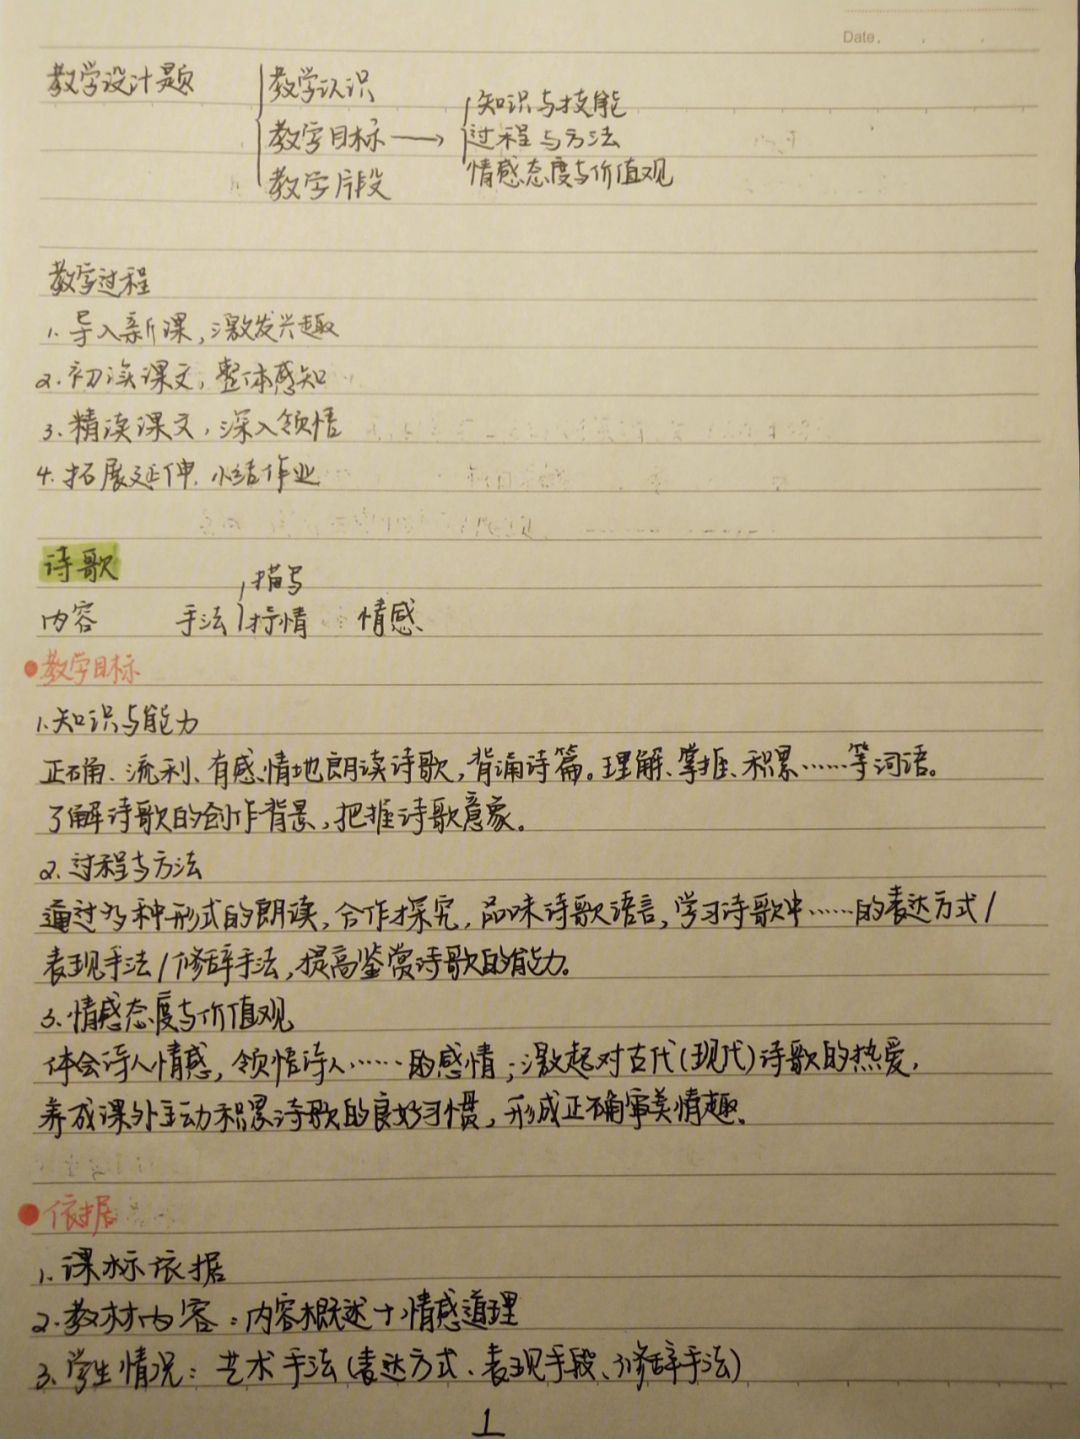 Date.
教学设计题
教学认识
教学目标 → 知识与技能
过程与方法
情感态度与价值观
教学片段
教学过程
1. 导入新课,激发兴趣
2. 初读课文,整体感知
3. 精读课文,深入领悟
4. 拓展延伸,小结作业
诗歌
内容 手法 描写 抒情 情感
教学目标
1. 知识与能力
正确、流利、有感情地朗读诗歌,背诵诗篇。理解、掌握、积累……等词语。
了解诗歌的创作背景,把握诗歌意象。
2. 过程与方法
通过多种形式的朗读,合作探究,品味诗歌语言,学习诗歌中……的表达方式/
表现手法/修辞手法,提高鉴赏诗歌的能力。
3. 情感态度与价值观
体会诗人情感,领悟诗人……的感情;激起对古代(现代)诗歌的热爱,
养成课外主动积累诗歌的良好习惯,形成正确审美情趣。
依据
1. 课标依据
2. 教材内容:内容概述+情感道理
3. 学生情况:艺术手法(表达方式、表现手段、修辞手法)
1